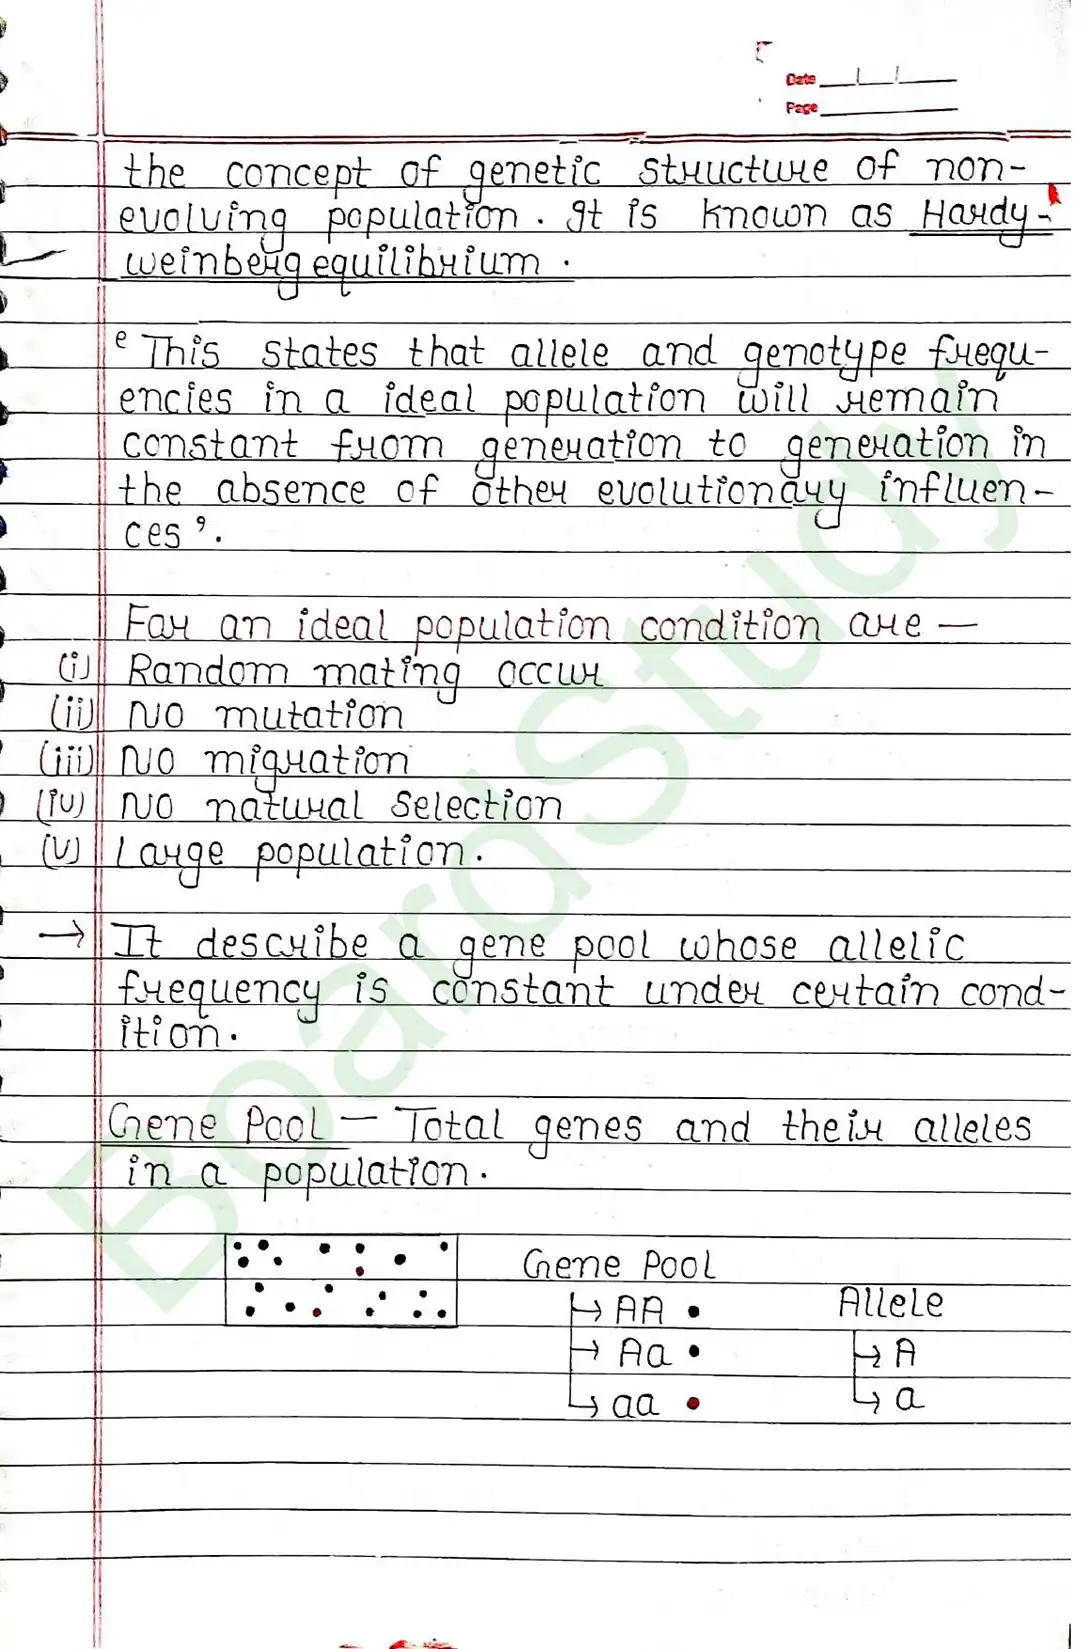 Date
Page
the concept of genetic structure of non-
evolving population. It is known as Hardy-
weinberg equilibrium.
‘This states that allele and genotype frequ-
encies in a ideal population will remain
constant from generation to generation in
the absence of other evolutionary influen-
ces’.
For an ideal population condition are —
(i) Random mating occur
(ii) No mutation
(iii) No migration
(iv) No natural selection
(v) Large population.
→ It describe a gene pool whose allelic
frequency is constant under certain cond-
ition.
Gene Pool — Total genes and their alleles
in a population.
Gene Pool
↳ AA •
→ Aa •
↳ aa •
Allele
↳ A
↳ a
BoardStudy